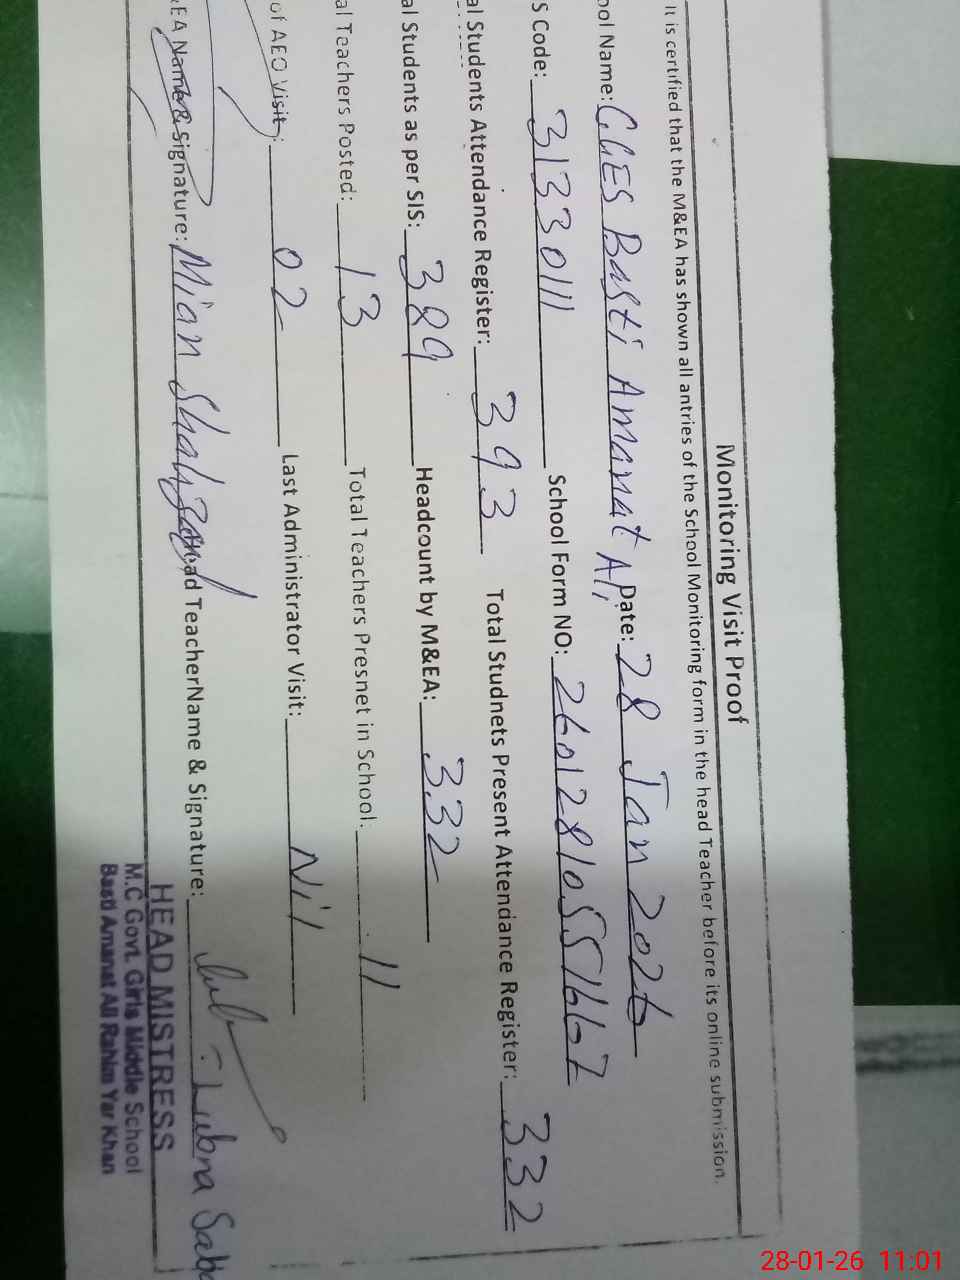 Monitoring Visit Proof
It is certified that the M&EA has shown all antries of the School Monitoring form in the head Teacher before its online submission.
ool Name: GGES Basti Amanat Ali Date: 28 Jan 2026
S Code: 31330111 School Form NO: 26012810551667
al Students Attendance Register: 393 Total Studnets Present Attendance Register: 332
al Students as per SIS: 389 Headcount by M&EA: 332
al Teachers Posted: 13 Total Teachers Presnet in School: 11
of AEO Visit: 02 Last Administrator Visit: Nil
EA Name & Signature: Mian ad TeacherName & Signature: Lubna
HEAD MISTRESS
M.C Govt. Girls Middle School
Basti Amanat Ali Rahim Yar Khan
28-01-26 11:01